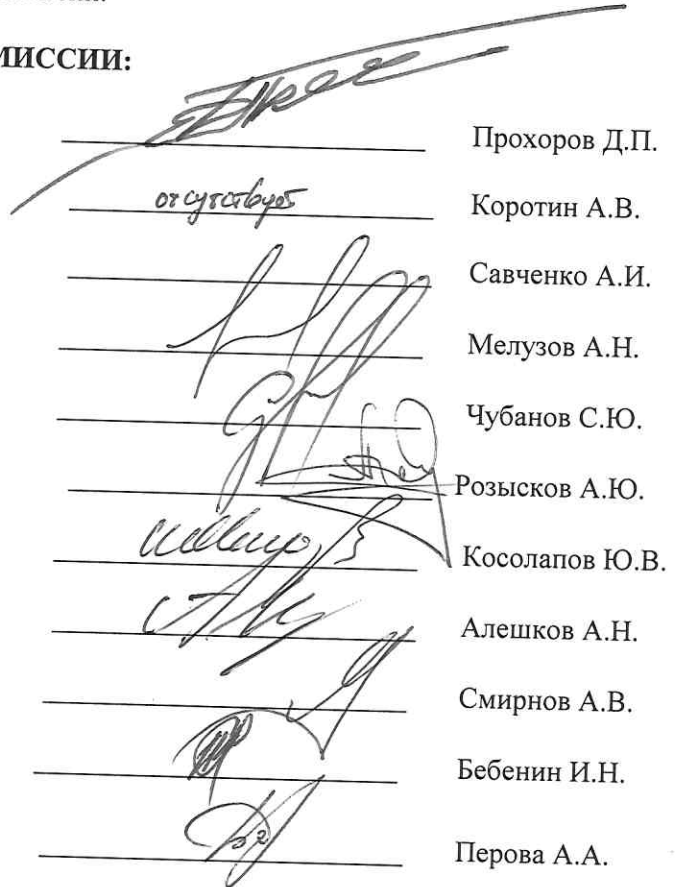 МИССИИ:
Прохоров Д.П.
отсутствует Коротин А.В.
Савченко А.И.
Мелузов А.Н.
Чубанов С.Ю.
Розысков А.Ю.
Косолапов Ю.В.
Алешков А.Н.
Смирнов А.В.
Бебенин И.Н.
Перова А.А.